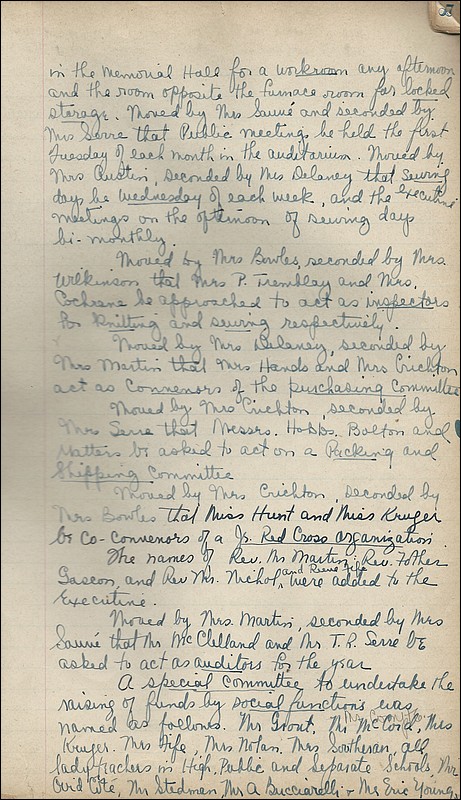 in the Memorial Hall for a workroom any afternoon
and the room opposite the furnace room for locked
storage. Moved by Mrs Sauvé and seconded by
Mrs Serre that Public meeting be held the first
Tuesday of each month in the auditorium. Moved by
Mrs Austin, seconded by Mrs Delaney that sewing
days be Wednesday of each week, and the executive
meetings on the afternoon of sewing days
bi-monthly.
Moved by Mrs Bowles, seconded by Mrs.
Wilkinson that Mrs P. Tremblay and Mrs.
Cochrane be approached to act as inspectors
for knitting and sewing respectively.
Moved by Mrs Delaney, seconded by
Mrs Martin that Mrs Hands and Mrs Crichton
act as convenors of the purchasing committee
Moved by Mrs Crichton, seconded by
Mrs Serre that Messrs. Hobbs. Bolton and
Matters be asked to act on a Packing and
Shipping Committee
Moved by Mrs Crichton, seconded by
Mrs Bowles that Miss Hunt and Miss Kruger
be co-convenors of a Jr. Red Cross organization.
The names of Rev. Mr Martin, Rev. Father
Gascon, and Rev Mr. Nichol, and Reeve Fife were added to the
Executive.
Moved by Mrs. Martin, seconded by Mrs
Sauvé that Mr. McClelland and Mr. T. R. Serre be
asked to act as auditors for the year
A special committee to undertake the
raising of funds by social functions was
named as follows. Mr Grout, Mr McCoia, Mrs
Kruger. Mrs Fife, Mrs Nolan. Mrs Southeran, all
lady teachers in High, Public and Separate Schools, Mr
Ovid Coté, Mr Stedman, Mr A Bucciarelli & Mr Eric Young